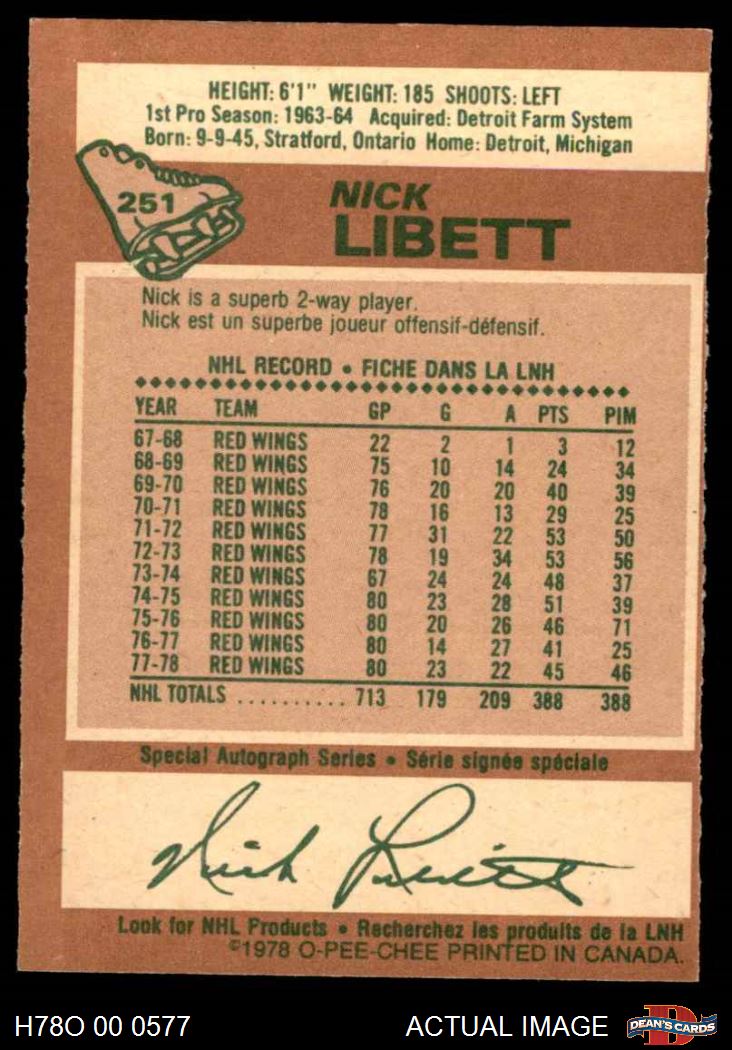 HEIGHT: 6'1" WEIGHT: 185 SHOOTS: LEFT
1st Pro Season: 1963-64 Acquired: Detroit Farm System
Born: 9-9-45, Stratford, Ontario Home: Detroit, Michigan
251
NICK
LIBETT
Nick is a superb 2-way player.
Nick est un superbe joueur offensif-défensif.
NHL RECORD • FICHE DANS LA LNH
YEAR TEAM GP G A PTS PIM
67-68 RED WINGS 22 2 1 3 12
68-69 RED WINGS 75 10 14 24 34
69-70 RED WINGS 76 20 20 40 39
70-71 RED WINGS 78 16 13 29 25
71-72 RED WINGS 77 31 22 53 50
72-73 RED WINGS 78 19 34 53 56
73-74 RED WINGS 67 24 24 48 37
74-75 RED WINGS 80 23 28 51 39
75-76 RED WINGS 80 20 26 46 71
76-77 RED WINGS 80 14 27 41 25
77-78 RED WINGS 80 23 22 45 46
NHL TOTALS .......... 713 179 209 388 388
Special Autograph Series • Série signée spéciale
Nick Libett
Look for NHL Products • Recherchez les produits de la LNH
©1978 O-PEE-CHEE PRINTED IN CANADA.
H78O 00 0577 ACTUAL IMAGE D DEAN'S CARDS